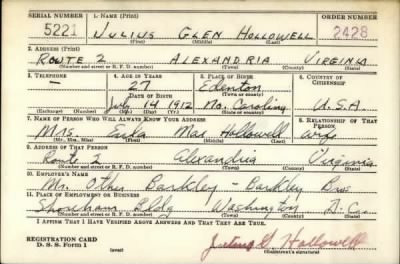 SERIAL NUMBER 1. NAME (Print) ORDER NUMBER
5221 JULIUS GLEN HOLLOWELL 2428
(First) (Middle) (Last)
2. ADDRESS (Print)
ROUTE 2 ALEXANDRIA VIRGINIA
(Number and street or R. F. D. number) (Town) (County) (State)
3. TELEPHONE 4. AGE IN YEARS 5. PLACE OF BIRTH 6. COUNTRY OF CITIZENSHIP
— 27 Edenton
DATE OF BIRTH (Town or county)
July 14 1912 No. Carolina U.S.A.
(Exchange) (Number) (Mo.) (Day) (Yr.) (State or country)
7. NAME OF PERSON WHO WILL ALWAYS KNOW YOUR ADDRESS 8. RELATIONSHIP OF THAT PERSON
Mrs. Mae Hollowell Wife
(Mr., Mrs., Miss) (First) (Middle) (Last)
9. ADDRESS OF THAT PERSON
Route 2 Alexandria Virginia
(Number and street or R. F. D. number) (Town) (County) (State)
10. EMPLOYER'S NAME
Mr. Barkley - Barkley Bros
11. PLACE OF EMPLOYMENT OR BUSINESS
Shoreham Bldg Washington D.C.
(Number and street or R. F. D. number) (Town) (County) (State)
I AFFIRM THAT I HAVE VERIFIED ABOVE ANSWERS AND THAT THEY ARE TRUE.
REGISTRATION CARD
D. S. S. Form 1 (over) Julius G Hollowell
(Registrant's signature)